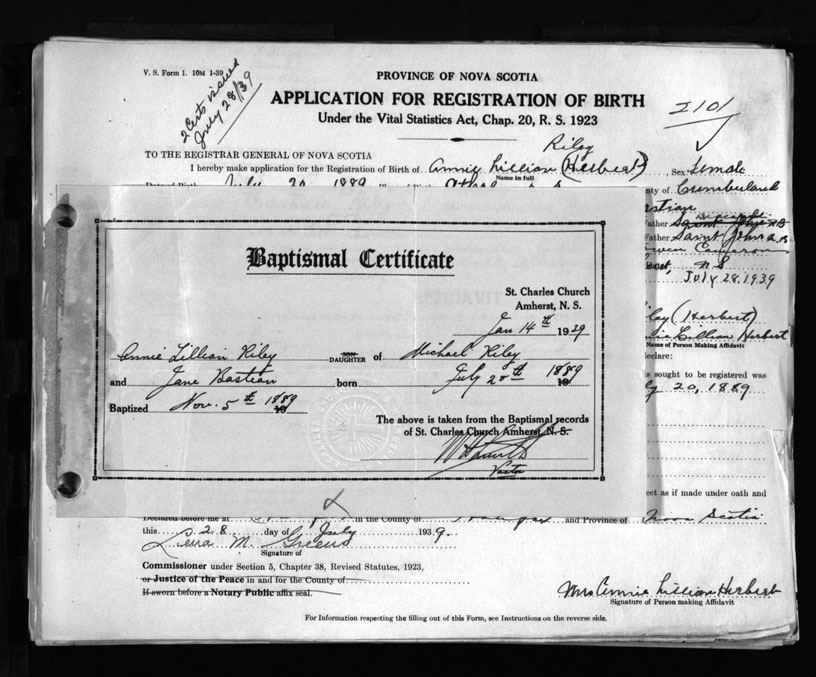 V. S. Form 1. 10M 1-39
2 Certs issued
July 28/39
PROVINCE OF NOVA SCOTIA
APPLICATION FOR REGISTRATION OF BIRTH
Under the Vital Statistics Act, Chap. 20, R. S. 1923
2101
TO THE REGISTRAR GENERAL OF NOVA SCOTIA
Riley
I hereby make application for the Registration of Birth of Annie Lillian (Herbert), Sex Female
Name in full
July 20 1889
ty of Cumberland
stian
ather Saint John N.B
Father Saint John N.B.
Cameron
N S
July 28. 1939
Baptismal Certificate
St. Charles Church
Amherst, N. S.
Jan 14th 1929
Annie Lillian Riley SON DAUGHTER of Michael Riley
and Jane Bastian born July 20th 1889 19
Baptized Nov. 5th 1889 19
The above is taken from the Baptismal records
of St. Charles Church Amherst, N. S.
Pastor
ley (Herbert)
nie Lillian Herbert
Name of Person Making Affidavit
eclare:
s sought to be registered was
ly 20, 1889
ect as if made under oath and
Declared before me at in the County of Halifax and Province of Nova Scotia
this 28 day of July 1939.
Lena M. Greeno
Signature of
Commissioner under Section 5, Chapter 38, Revised Statutes, 1923,
or Justice of the Peace in and for the County of
If sworn before a Notary Public affix seal.
Mrs Annie Lillian Herbert
Signature of Person making Affidavit
For Information respecting the filling out of this Form, see Instructions on the reverse side.